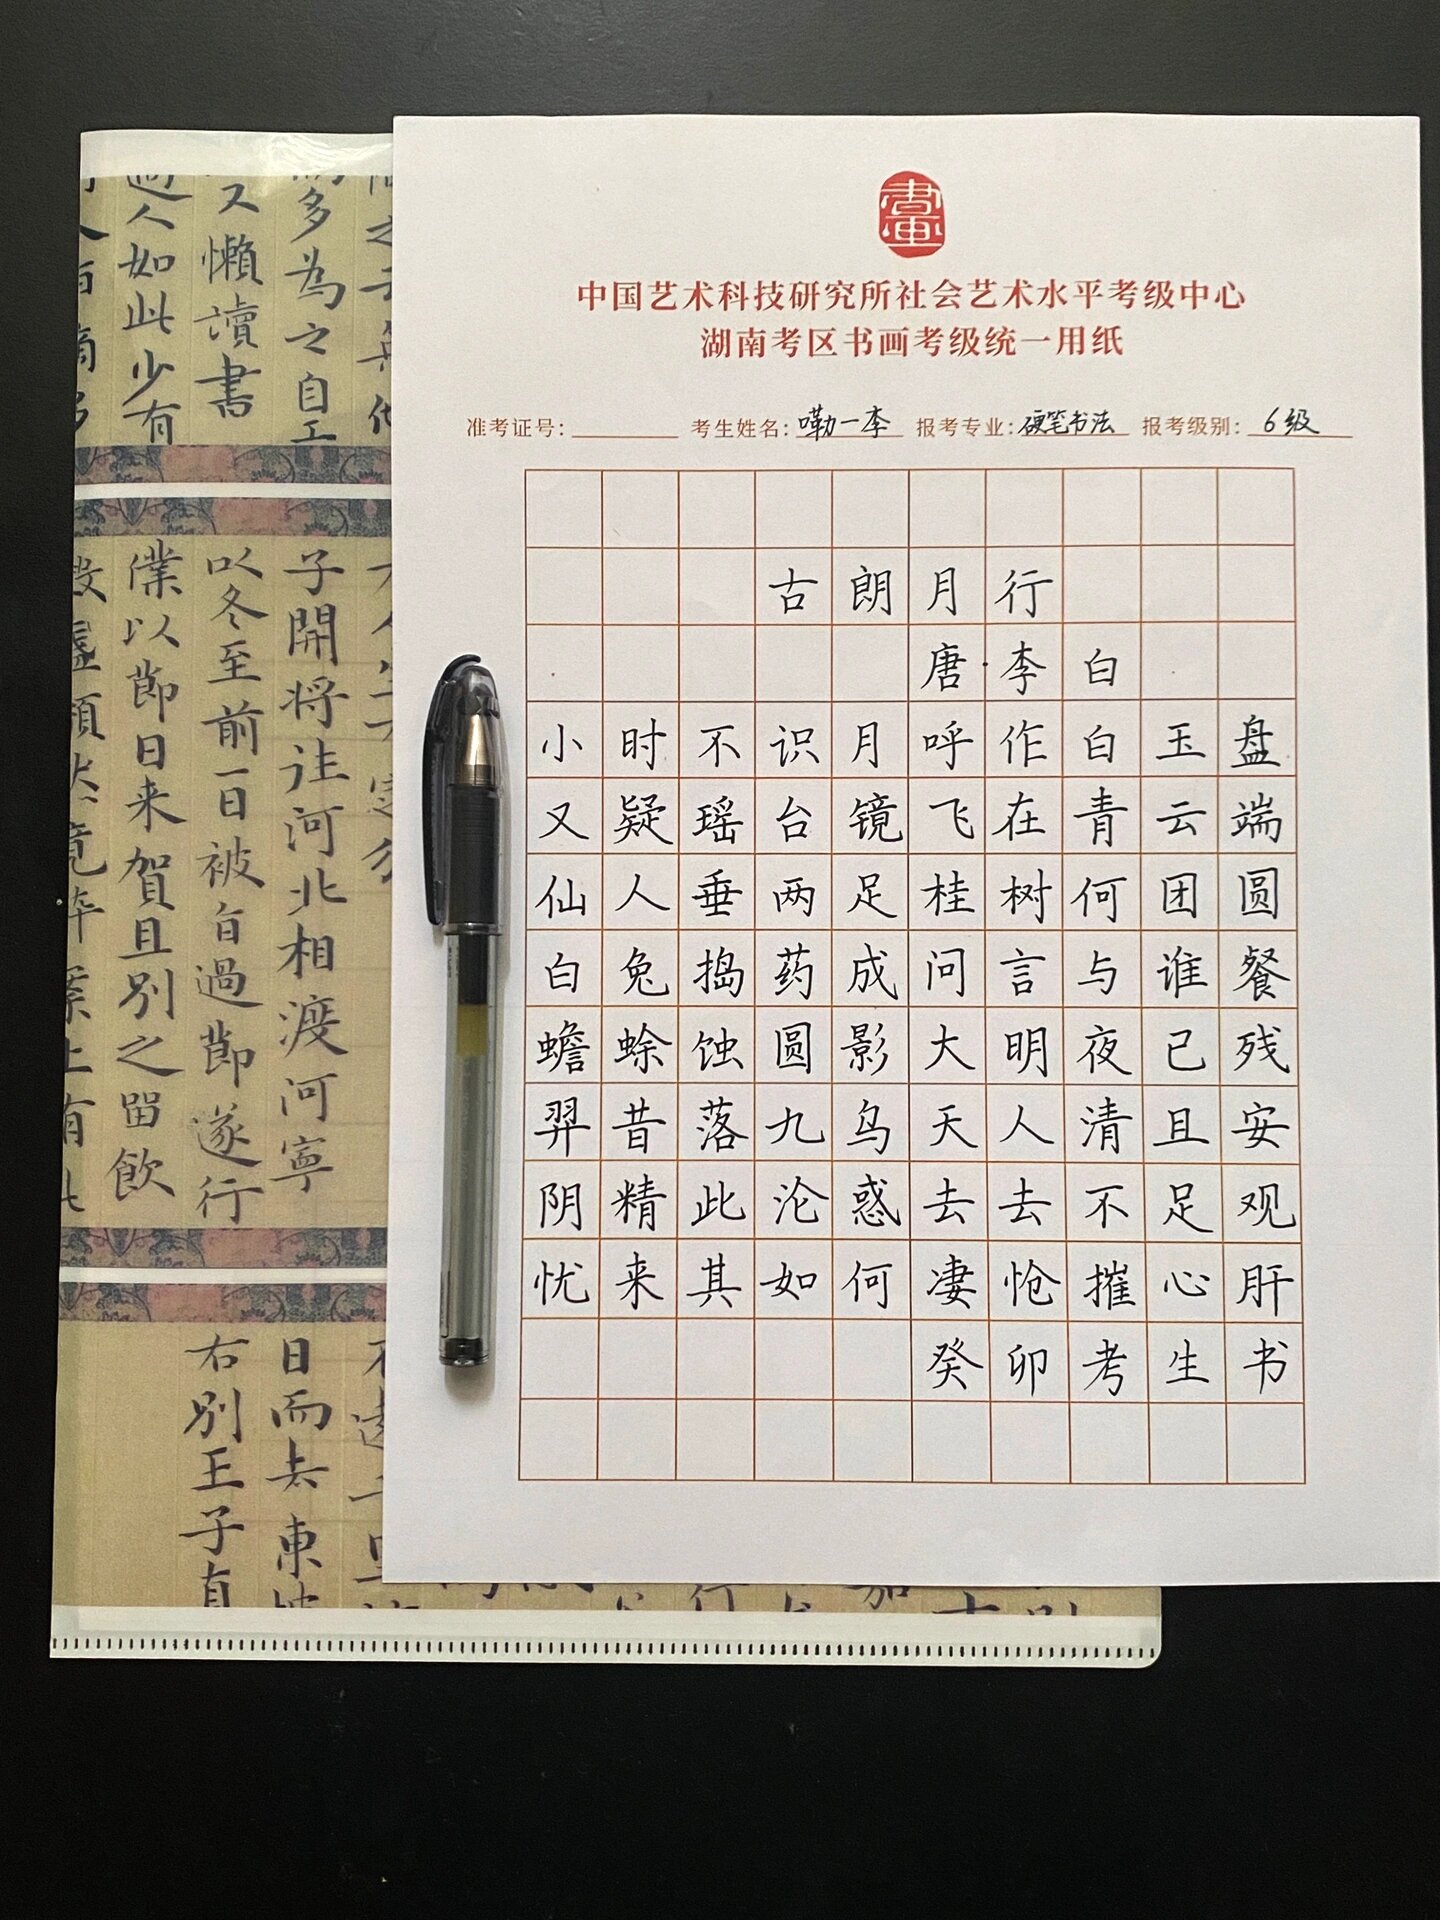 書画
中国艺术科技研究所社会艺术水平考级中心
湖南考区书画考级统一用纸
准考证号: 考生姓名: 嘞一李 报考专业: 硬笔书法 报考级别: 6级
古朗月行
唐·李白
小时不识月呼作白玉盘
又疑瑶台镜飞在青云端
仙人垂两足桂树何团圆
白兔捣药成问言与谁餐
蟾蜍蚀圆影大明夜已残
羿昔落九乌天人清且安
阴精此沦惑去去不足观
忧来其如何凄怆摧心肝
癸卯考生书
多为之自工
又懒讀書
過人如此少有
子開将往河北相渡河寧
以冬至前一日被旨過節遂行
僕以節日来賀且別之留飲
日而去東坡
右別王子直